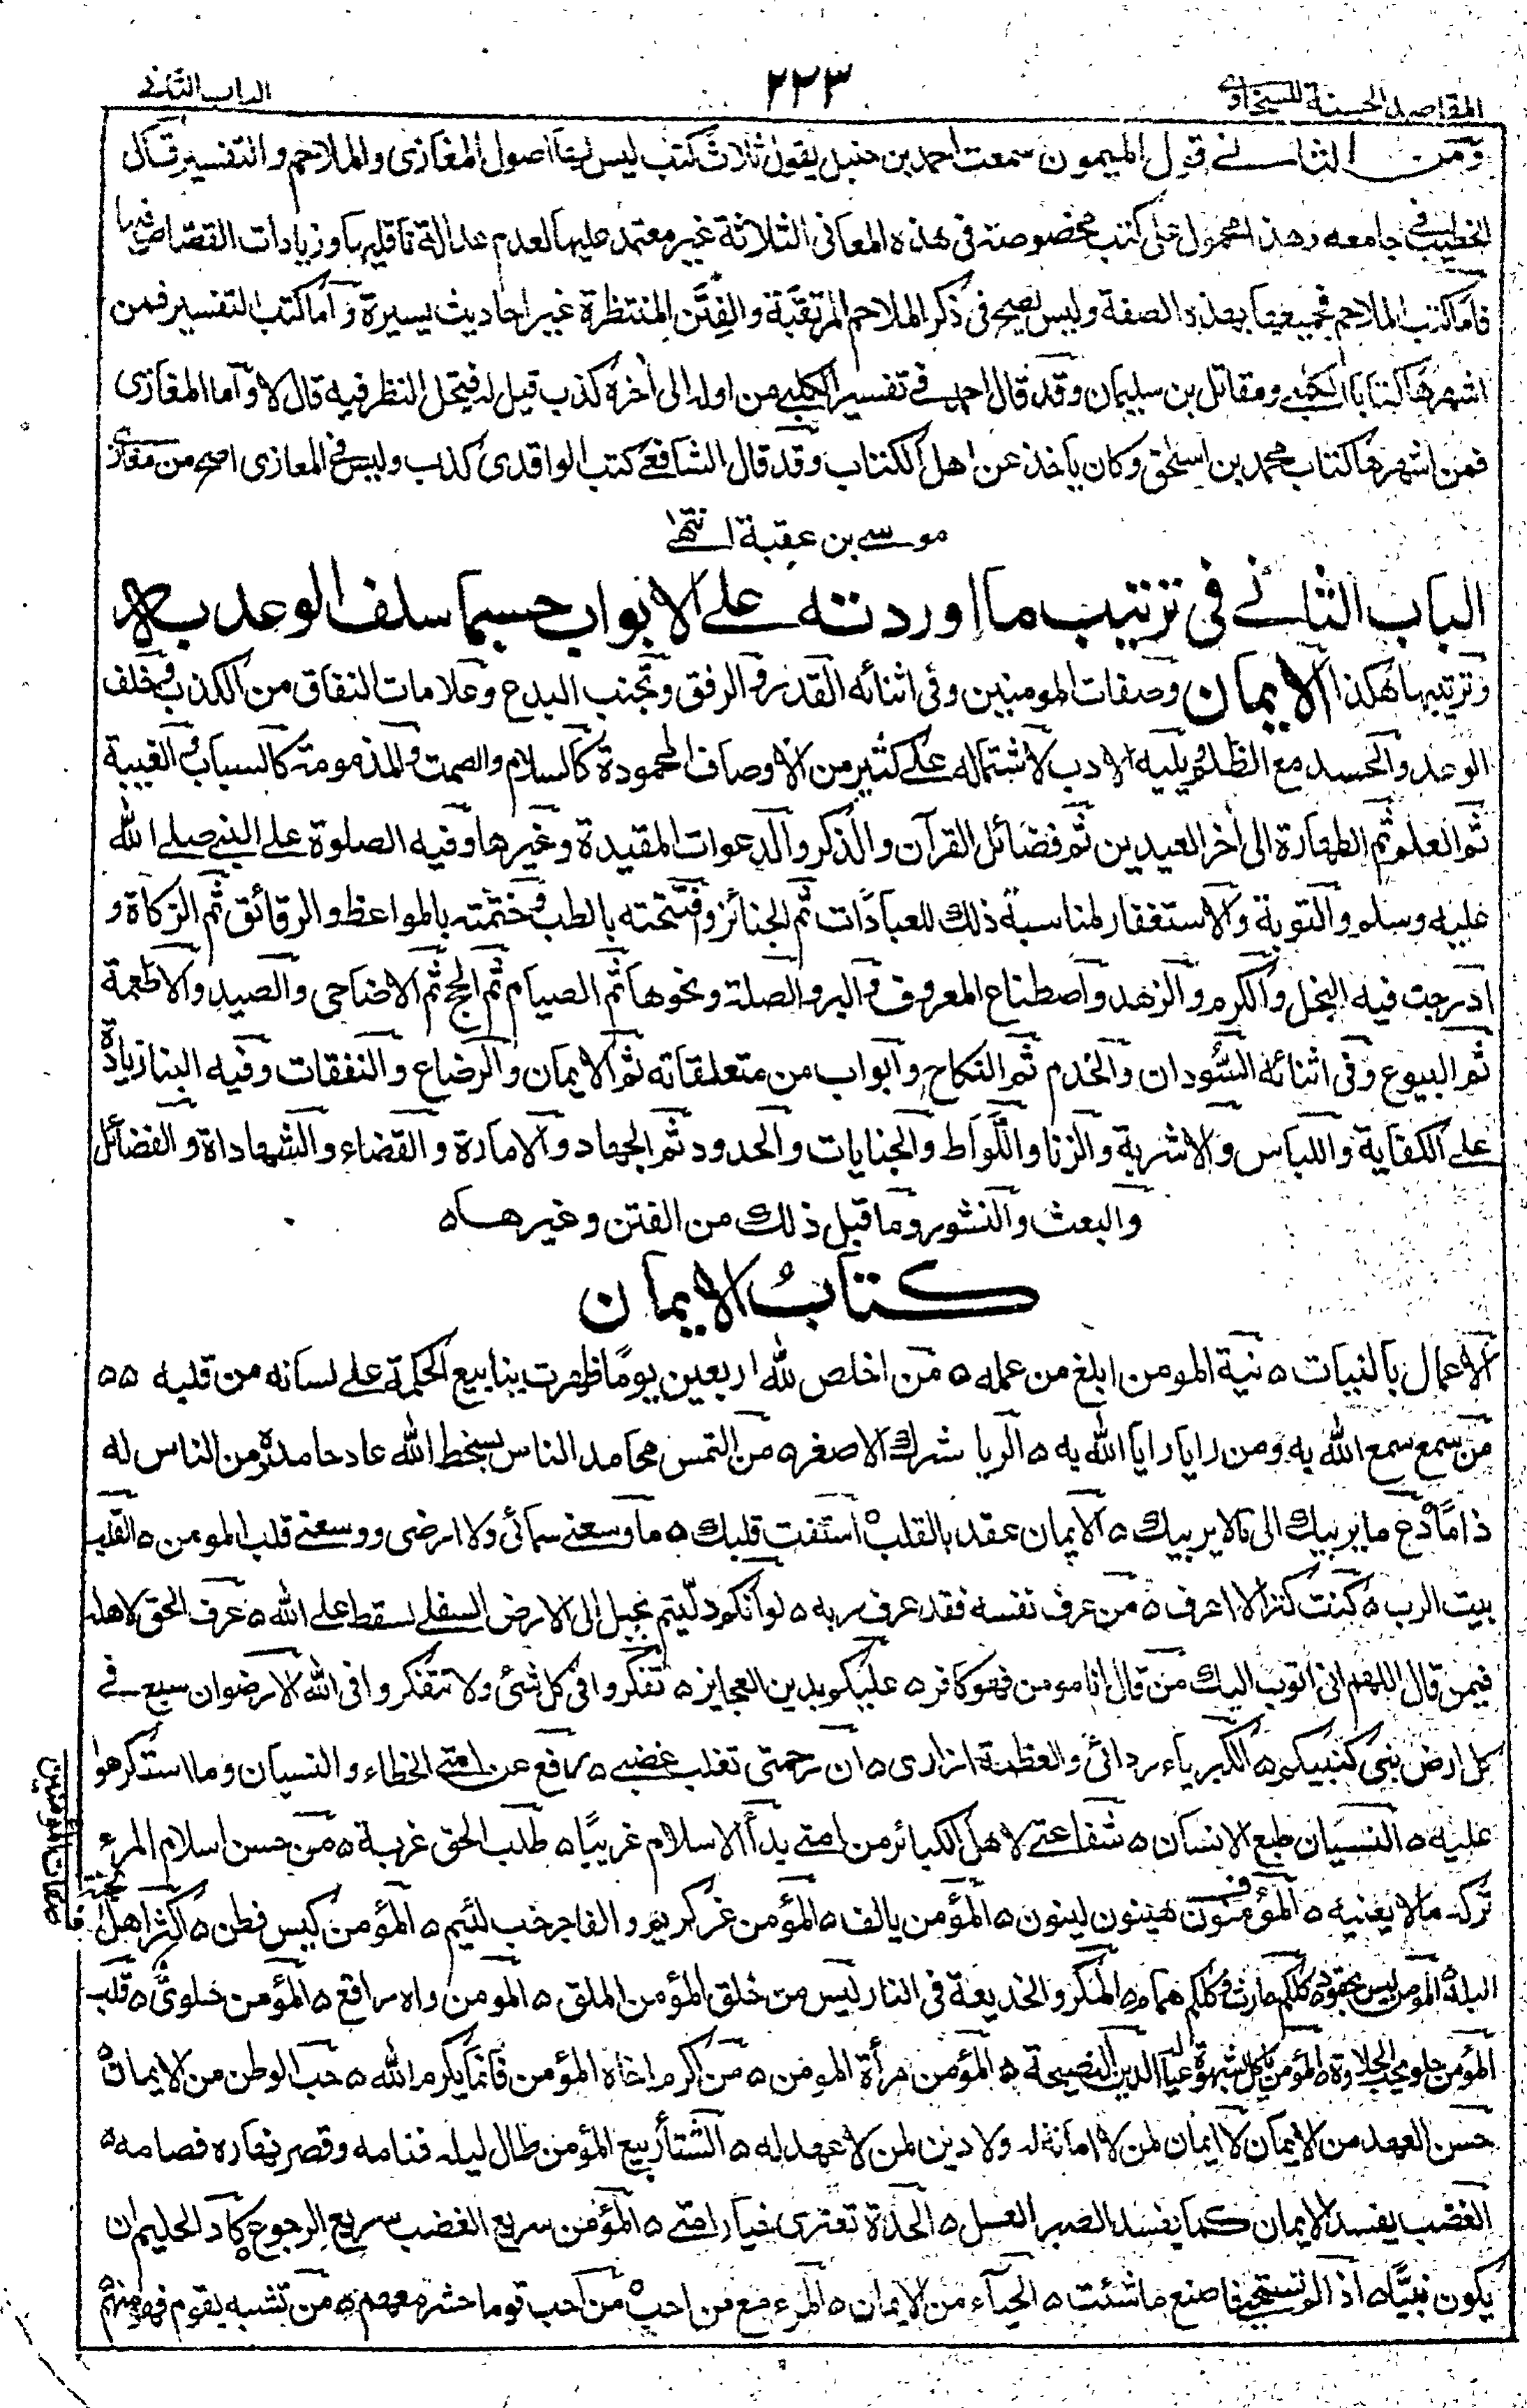 المقاصد الحسنة للسخاوى
٢٢٣
الباب الثانى
ومن الثانى قول الميمون سمعت احمد بن حنبل يقول ثلاث كتب ليس لها اصول المغازى والملاحم والتفسير قال
الخطيب فى جامعه وهذا محمول على كتب مخصوصة فى هذه المعانى الثلاثة غير معتمد عليها لعدم عدالة ناقليها وزيادات القصاص فيها
فاما كتب الملاحم فجميعها بهذه الصفة وليس يصح فى ذكر الملاحم المرتقبة والفتن المنتظرة غير احاديث يسيرة واما كتب التفسير فمن
اشهرها كتابا الكلبى ومقاتل بن سليمان وقد قال احمد فى تفسير الكلبى من اوله الى أخره كذب قيل له فيحل النظر فيه قال لا وأما المغازى
فمن اشهرها كتاب محمد بن اسحق وكان ياخذ عن اهل الكتاب وقد قال الشافعى كتب الواقدى كذب وليس فى المغازى اصح من مغازى
موسى بن عقبة انتهى
الباب الثانى فى ترتيب ما اوردته على الابواب حسبما سلف الوعد به
وترتيبها هكذا الايمان وصفات المومنين وفى اثنائه القدر والرفق وتجنب البدع وعلامات النفاق من الكذب وخلف
الوعد والحسد مع الظلم ويليه الادب لاشتماله على كثير من الاوصاف المحمودة كالسلام والصمت والمذمومة كالسباب والغيبة
ثم العلم ثم الطهارة الى أخر العيدين ثم فضائل القرآن والذكر والدعوات المقيدة وغيرها وفيه الصلوة على النبى صلى الله
عليه وسلم والتوبة والاستغفار لمناسبة ذلك للعبادات ثم الجنائز وافتتحته بالطب وختمته بالمواعظ والرقائق ثم الزكاة و
ادرجت فيه البخل والكرم والزهد واصطناع المعروف والبر والصلة ونحوها ثم الصيام ثم الحج ثم الاضاحى والصيد والاطعمة
ثم البيوع وفى اثنائه السودان والخدم ثم النكاح وابواب من متعلقاته ثم الايمان والرضاع والنفقات وفيه البنا زيادة
على الكفاية واللباس والاشربة والزنا واللواط والجنايات والحدود ثم الجهاد والامارة والقضاء والشهاداة والفضائل
والبعث والنشور وما قبل ذلك من الفتن وغيرها ه
كتاب الايمان
الاعمال بالنيات ه نية المومن ابلغ من عمله ه من اخلص لله اربعين يوما ظهرت ينابيع الحكمة على لسانه من قلبه ه ه
من سمع سمع الله به ومن رايا رايا الله به ه الريا شرك الاصغر ه من التمس محامد الناس بسخط الله عاد حامده من الناس له
ذاما دع ما يريبك الى مالا يريبك ه الايمان عقد بالقلب ه استفت قلبك ه ما وسعنى سمائى ولا ارضى ووسعنى قلب المومن ه القلب
بيت الرب ه كنت كنزا لا اعرف ه من عرف نفسه فقد عرف ربه ه لو انكم دليتم بحبل الى الارض السفلى لسقط على الله ه عرف الحق لاهله
فيمن قال اللهم انى اتوب اليك من قال انا مومن فهو كافر ه عليكم بدين العجايز ه تفكروا فى كل شئى ولا تتفكروا فى الله الارضوان سبع فى
كل ارض نبى كنبيكم ه الكبرياء ردائى والعظمة ازارى ه ان رحمتى تغلب غضبى ه رفع عن امتى الخطاء والنسيان وما استكرهوا
عليه ه النسيان طبع الانسان ه شفاعتى لاهل الكبائر من امتى بدأ الاسلام غريبا ه طلب الحق غربة ه من حسن اسلام المرء
تركه مالا يعنيه ه المؤمنون هينون لينون ه المؤمن يالف ه المؤمن غر كريم والفاجر خب لئيم ه المؤمن كيس فطن ه اكثر اهل الجنة
البله ه المؤمن ليس بحقود ه كلكم حارث وكلكم همام ه المكر والخديعة فى النار ليس من خلق المؤمن الملق ه المومن واه راقع ه المؤمن حلوى ه قلب
المؤمن حلو يحب الحلاوة ه المؤمن يأكل بشهوة عياله الدين النصيحة ه المؤمن مرأة المومن ه من اكرم اخاه المؤمن فانما يكرم الله ه حب الوطن من الايمان ه
حسن العهد من الايمان لا ايمان لمن لا امانة له ولا دين لمن لا عهد له ه الشتأ ربيع المؤمن طال ليله فنامه وقصر نهاره فصامه ه
الغضب يفسد الايمان كما يفسد الصبر العسل ه الحدة تعترى خيار امتى ه المؤمن سريع الغضب سريع الرجوع كاد الحليم ان
يكون نبيا ه اذا لم تستحى فاصنع ما شئت ه الحيآء من الايمان ه المرء مع من احب ه من احب قوما حشر معهم ه من تشبه بقوم فهو منهم
صفات المومنين